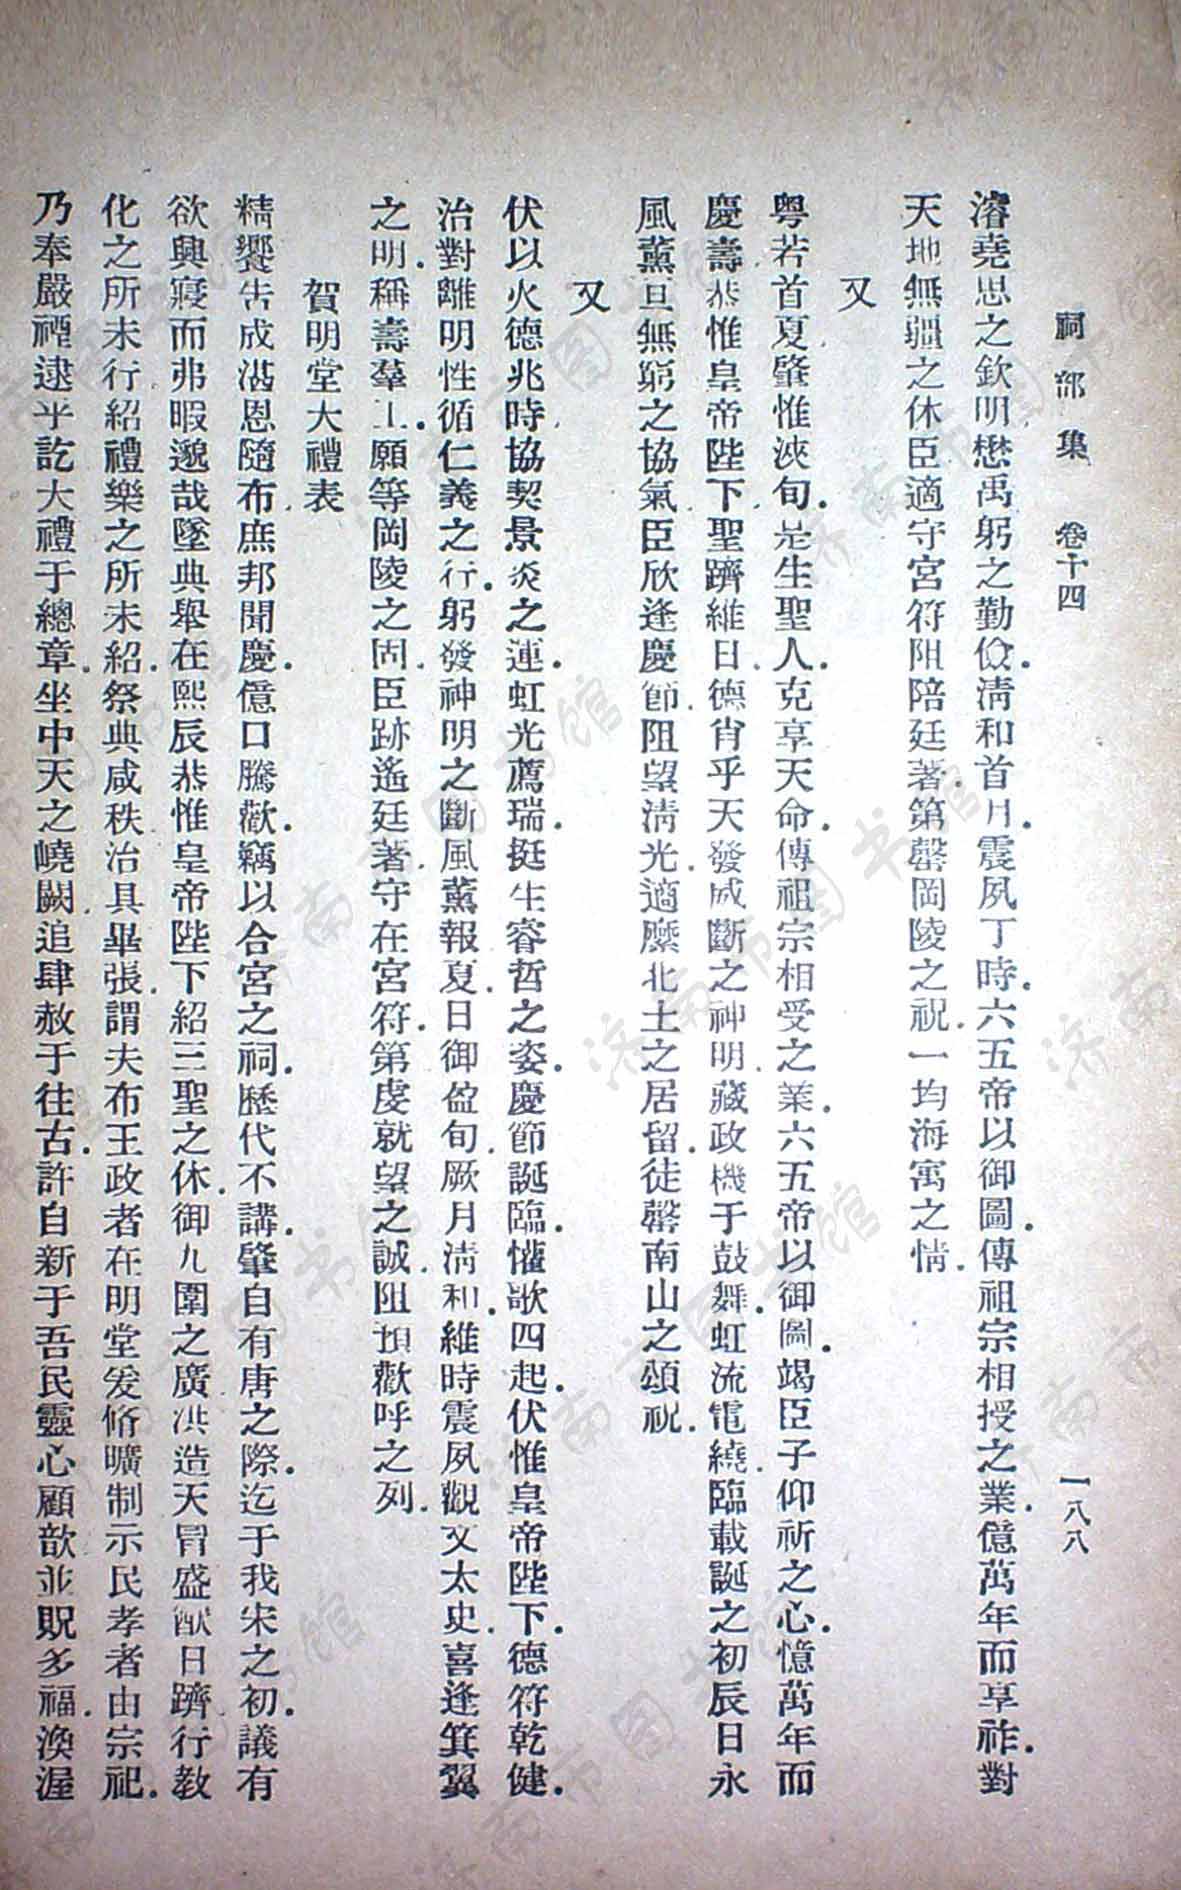 祠部集　卷十四　一八八
濬堯思之欽明懋禹躬之勤儉.淸和首月.震夙丁時.六五帝以御圖.傳祖宗相授之業.億萬年而享祚.對
天地無疆之休臣適守宮符阻陪廷著.第罄岡陵之祝.一均海寓之情.
又
粤若首夏肇惟浹旬.是生聖人.克享天命.傳祖宗相受之業.六五帝以御圖.竭臣子仰祈之心.憶萬年而
慶壽.恭惟皇帝陛下.聖躋維日.德肖乎天.發威斷之神明.藏政機于鼓舞.虹流電繞.臨載誕之初辰日永
風薰亘無窮之協氣.臣欣逢慶節.阻望淸光.適縻北土之居留.徒罄南山之頌祝.
又
伏以火德兆時協契景炎之運.虹光薦瑞.挺生睿哲之姿.慶節誕臨.懽歌四起.伏惟皇帝陛下.德符乾健.
治對離明性循仁義之行.躬發神明之斷.風薰報夏.日御盈旬.厥月淸和.維時震夙.觀文太史.喜逢箕翼
之明.稱壽羣工.願等岡陵之固.臣跡遙廷著.守在宮符.第虔就望之誠.阻預歡呼之列.
賀明堂大禮表
精饗吿成.湛恩隨布.庶邦聞慶.億口騰歡.竊以合宮之祠.歷代不講.肇自有唐之際.迄于我宋之初.議有
欲興寢而弗暇邈哉墜典舉在熙辰恭惟皇帝陛下紹三聖之休.御九圍之廣洪造天冒盛猷日躋.行敎
化之所未行.紹禮樂之所未紹.祭典咸秩.治具畢張.謂夫布王政者在明堂爰脩曠制示民孝者由宗祀.
乃奉嚴禋逮乎訖大禮于總章.坐中天之嶢闕.追肆赦于往古.許自新于吾民靈心顧歆並貺多福.渙渥